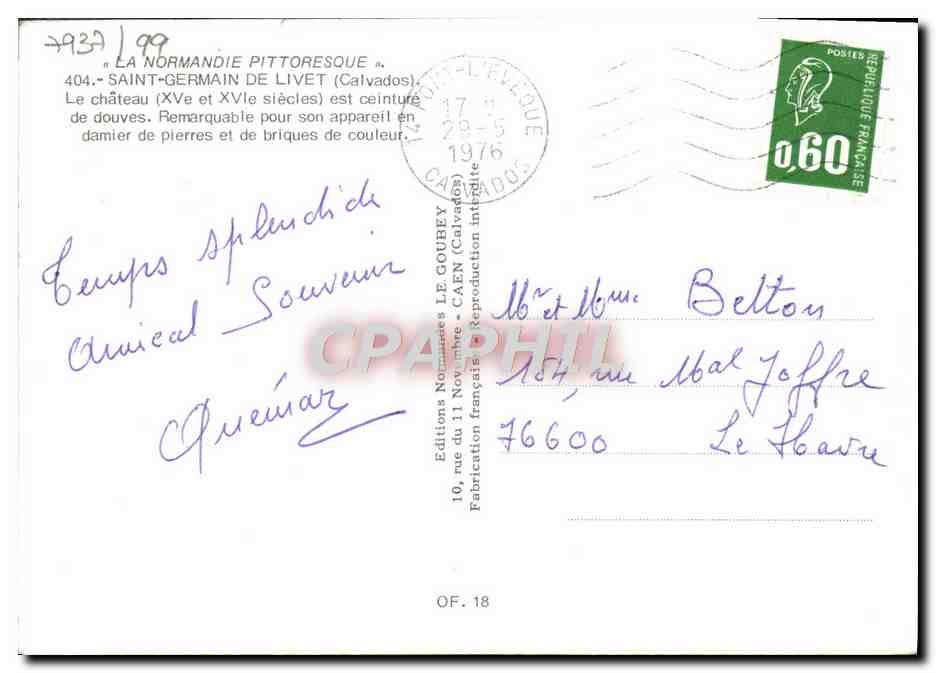 7937/99
« LA NORMANDIE PITTORESQUE ».
404.- SAINT-GERMAIN DE LIVET (Calvados).
Le château (XVe et XVIe siècles) est ceinturé
de douves. Remarquable pour son appareil en
damier de pierres et de briques de couleur.
14 PONT-L'EVEQUE
17 H
29-5
1976
CALVADOS
POSTES
REPUBLIQUE FRANÇAISE
0,60
Temps splendide
Amical Souvenir
Quémar
Editions Normandes LE GOUBEY
10, rue du 11 Novembre - CAEN (Calvados)
Fabrication française - Reproduction interdite
Mr et Mme Belton
184, rue Mal Joffre
76600 Le Havre
CPAPHIL
OF. 18